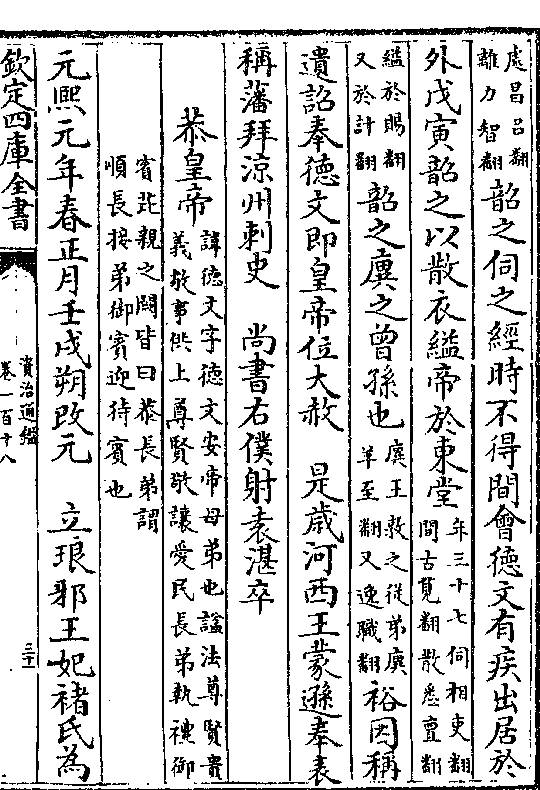 處昌呂翻
離力智翻
韶之伺之經時不得間會德文有疾出居於
外戊寅韶之以散衣縊帝於東堂
年三十七伺相吏翻
間古莧翻散悉亶翻
縊於賜翻
又於計翻
韶之廙之曾孫也
廙王敦之從弟廙
羊至翻又逸職翻
裕因稱
遺詔奉德文即皇帝位大赦　是歲河西王蒙遜奉表
稱藩拜涼州刺史　尚書右僕射袁湛卒
恭皇帝
諱德文字德文安帝母弟也諡法尊賢貴
義敬事供上尊賢敬讓愛民長弟執禮御
賓芘親之闕皆曰恭長弟謂
順長接弟御賓迎待賓也
元熙元年春正月壬戌朔改元　立琅邪王妃褚氏為
欽定四庫全書
資治通鑑
卷一百十八
三十一